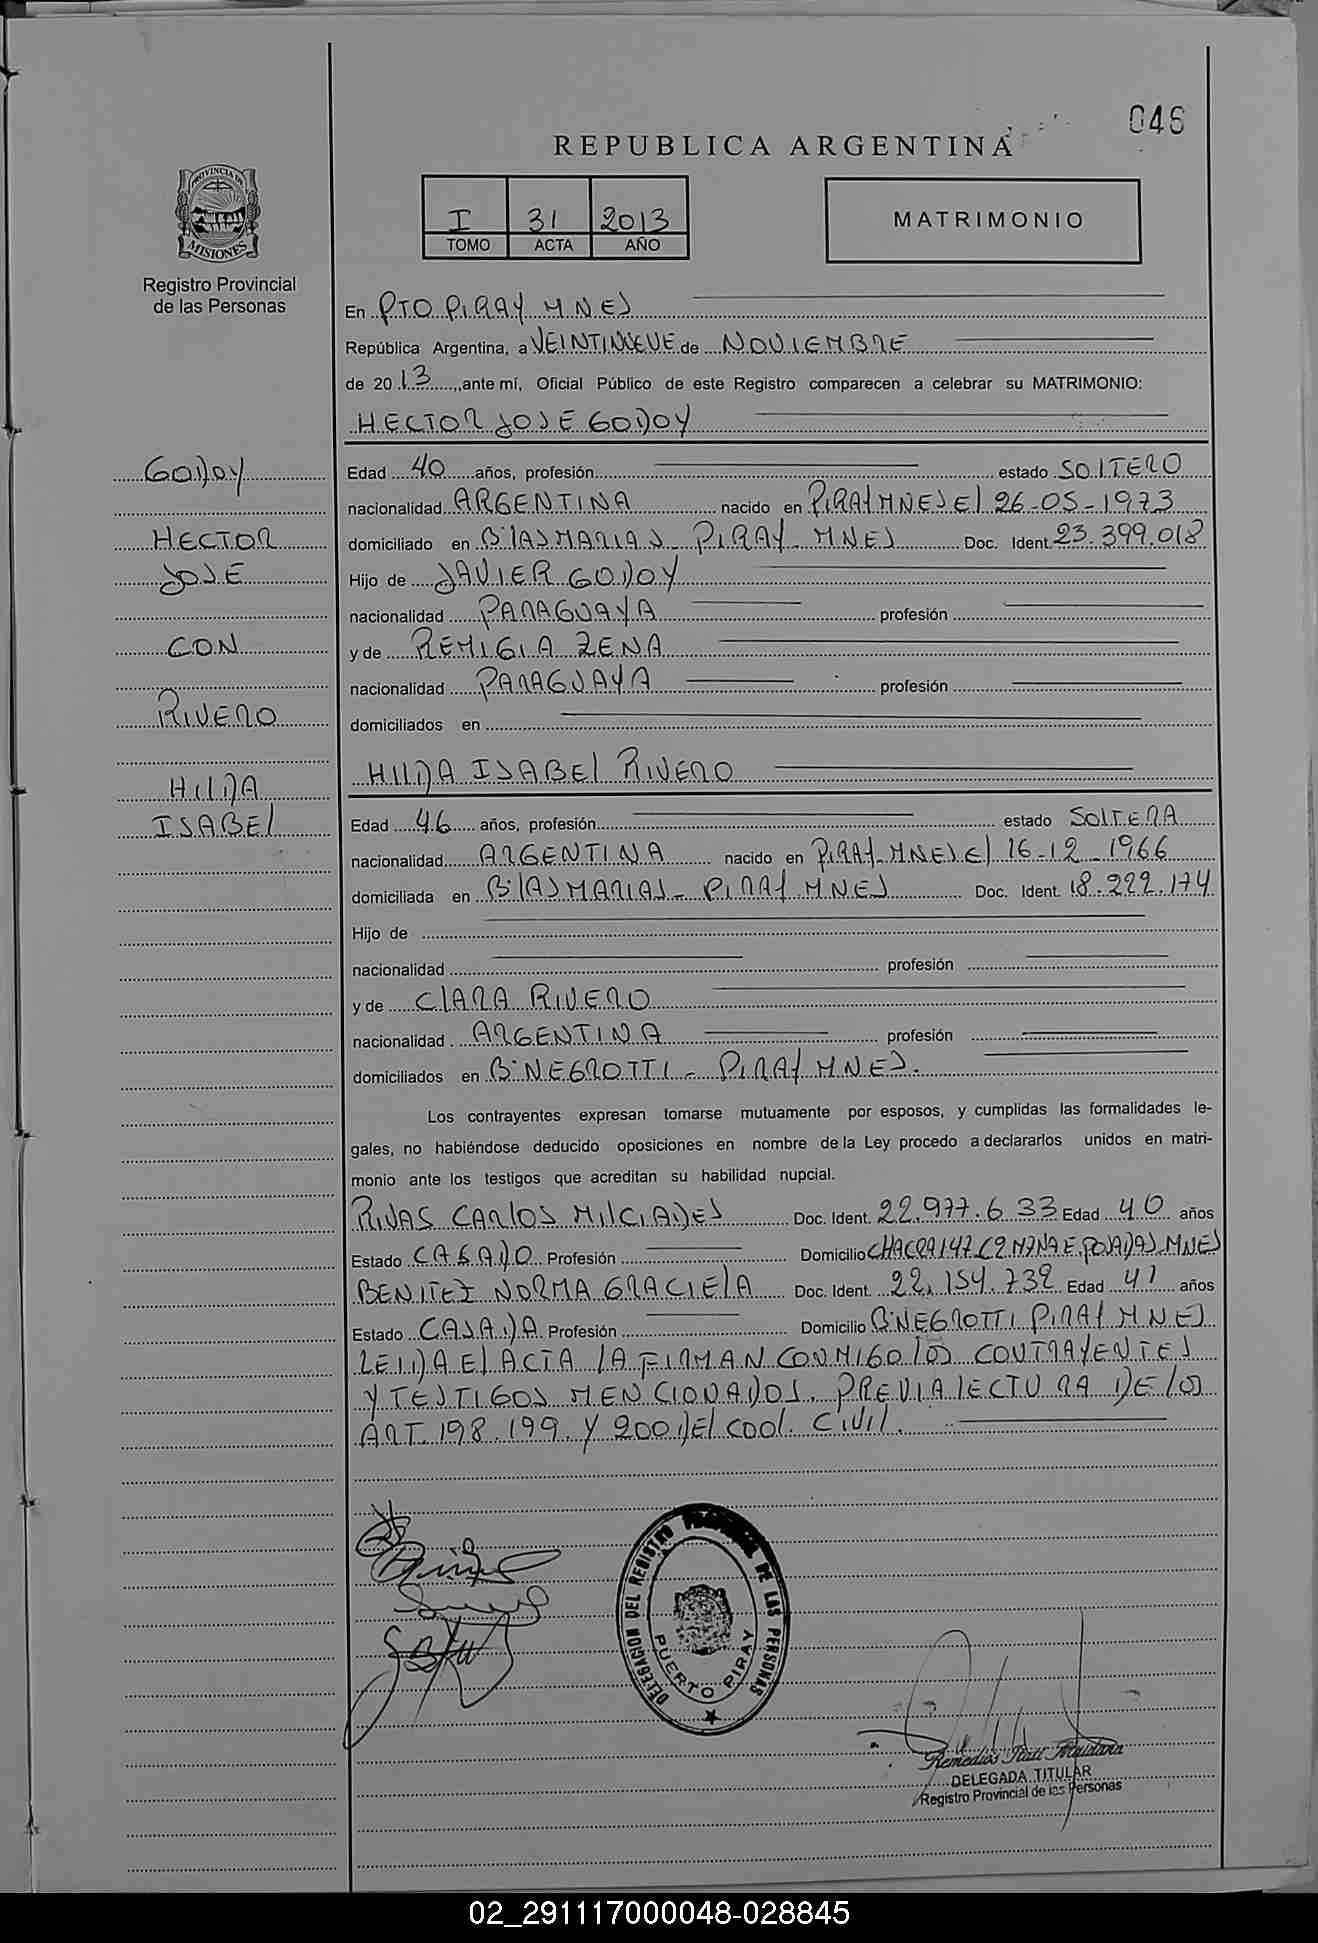 046
REPUBLICA ARGENTINA
PROVINCIA DE
MISIONES
Registro Provincial
de las Personas
I 31 2013
TOMO ACTA AÑO
MATRIMONIO
En PTO PIRAY MNES
República Argentina, a VEINTINUEVE de NOVIEMBRE
de 2013, ante mí, Oficial Público de este Registro comparecen a celebrar su MATRIMONIO:
HECTOR JOSE GODOY
GODOY
HECTOR
JOSE
CON
RIVERO
HILDA
ISABEL
Edad 40 años, profesión estado SOLTERO
nacionalidad ARGENTINA nacido en PIRAY MNES El 26-05-1973
domiciliado en Bº LAS MARIAS PIRAY - MNES Doc. Ident. 23.399.018
Hijo de JAVIER GODOY
nacionalidad PARAGUAYA profesión
y de REMIGIA ZENA
nacionalidad PARAGUAYA profesión
domiciliados en
HILDA ISABEL RIVERO
Edad 46 años, profesión estado SOLTERA
nacionalidad ARGENTINA nacido en PIRAY-MNES El 16-12-1966
domiciliada en Bº LAS MARIAS - PIRAY MNES Doc. Ident. 18.222.174
Hijo de
nacionalidad profesión
y de CLARA RIVERO
nacionalidad ARGENTINA profesión
domiciliados en Bº NEGROTTI - PIRAY MNES.
Los contrayentes expresan tomarse mutuamente por esposos, y cumplidas las formalidades le-
gales, no habiéndose deducido oposiciones en nombre de la Ley procedo a declararlos unidos en matri-
monio ante los testigos que acreditan su habilidad nupcial.
RIVAS CARLOS MILCIADES Doc. Ident. 22.977.633 Edad 40 años
Estado CASADO Profesión Domicilio CHACRA 147 C2 MZNA E. POSADAS MNES
BENITEZ NORMA GRACIELA Doc. Ident. 22.154.732 Edad 41 años
Estado CASADA Profesión Domicilio Bº NEGROTTI PIRAY MNES
LEIDA El ACTA LA FIRMAN CONMIGO LOS CONTRAYENTES
Y TESTIGOS MENCIONADOS. PREVIA LECTURA DE LOS
ART. 198. 199. Y 200 DEl COOl. CIVIL.
DELEGACION DEL REGISTRO PROVINCIAL DE LAS PERSONAS
PUERTO PIRAY
Remedios Itatí Maidana
DELEGADA TITULAR
Registro Provincial de las Personas
02_291117000048-028845